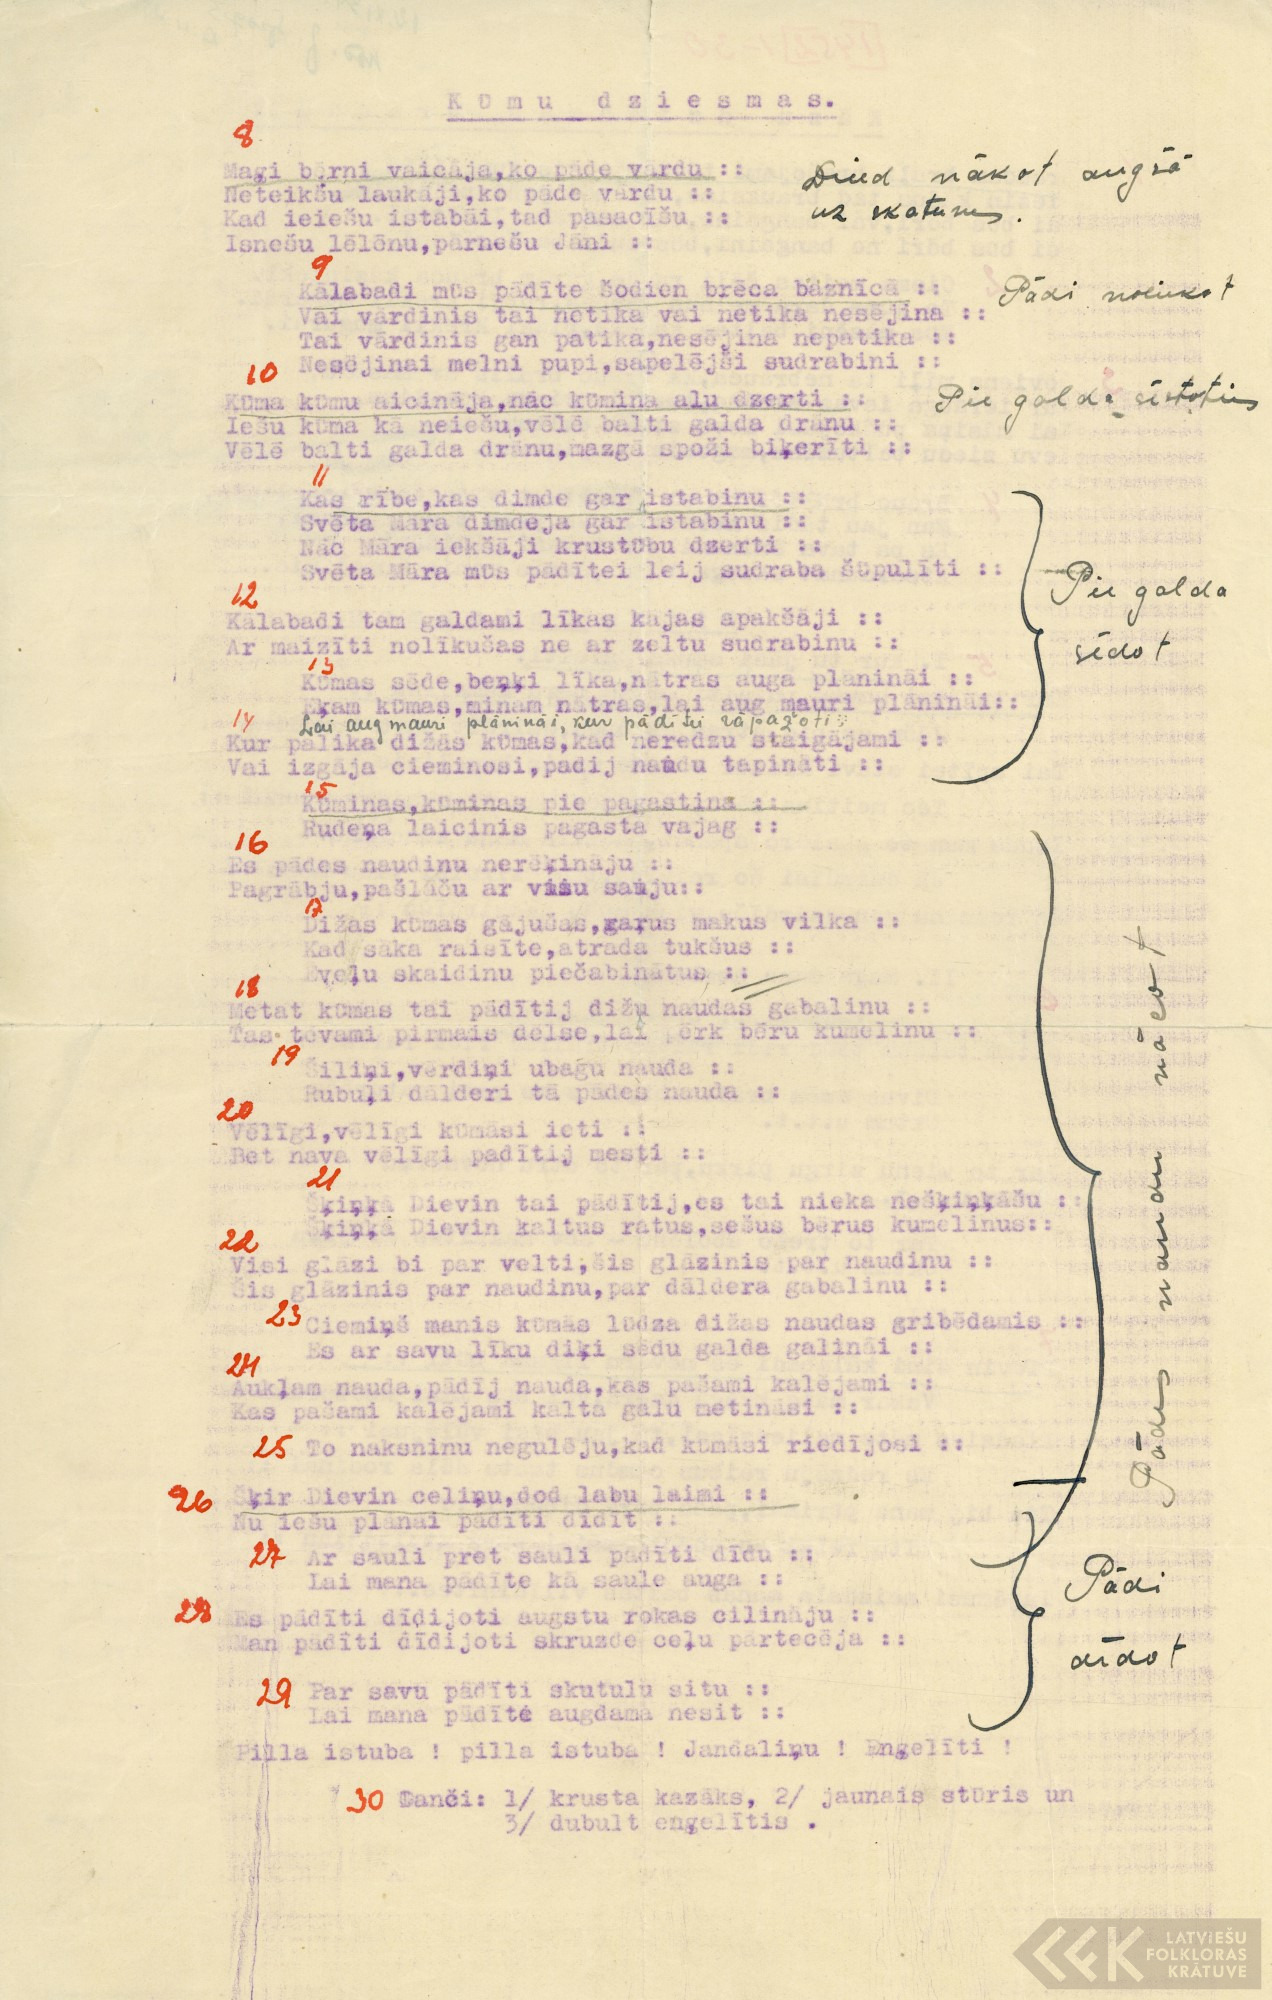 Kūmu dziesmas.
8
Maģi bērni vaicāja,ko pāde vārdu ::
Neteikšu laukāji,ko pāde vārdu ::
Kad ieiešu istabāi,tad pasacīšu ::
Isnešu lēlēnu,pārnešu Jāni ::
nākot augšā
uz skatuves.
9
Kālabadi mūs pādīte šodien brēca bāznīcā ::
Vai vārdinis tai netika vai netika nesējina ::
Tai vārdinis gan patika,nesējina nepatika ::
Nesējinai melni pupi,sapelējši sudrabini ::
Pādi noliekot
10
Kūma kūmu aicināja,nāc kūmina alu dzerti ::
Iešu kūma kā neiešu,vēlē balti galda drānu ::
Vēlē balti galda drānu,mazgā spoži biķerīti ::
Pie galda sēstoties
11
Kas rībe,kas dimde gar istabinu ::
Svēta Māra dimdēja gar istabinu ::
Nāc Māra iekšāji krustūbu dzerti ::
Svēta Māra mūs pādītei leij sudraba šūpulīti ::
12
Kālabadi tam galdami līkas kājas apakšāji ::
Ar maizīti nolīkušas ne ar zeltu sudrabinu ::
13
Kūmas sēde,beņķi līka,nātras auga plāninái ::
Ekam kūmas,minam nātras,lai aug mauri plānināi::
Lai aug mauri plānināi, kur pādīti rāpaģoti ::
14
Kur palika dižās kūmas,kad neredzu staigājami ::
Vai izgāja cieminosi,pādij naudu tapināti ::
Pie galda
sēdot
15
Kūminas,kūminas pie pagastina ::
Rudeņa laicinis pagasta vajag ::
16
Es pādes naudinu nerēķināju ::
Pagrābju,pašlāču ar visu sauju::
17
Dižas kūmas gājušas,garus makus vilka ::
Kad sāka raisīte,atrada tukšus ::
Eveļu skaidinu piečabinātus ::
18
Metat kūmas tai pādītij dižu naudas gabalinu ::
Tas tēvami pirmais dēlse,lai pērk bēru kumelinu ::
19
Šiliņi,vērdiņi ubagu nauda ::
Rubuļi dālderi tā pādes nauda ::
20
Vēlīgi,vēlīgi kūmāsi ieti ::
Bet nava vēlīgi pādītij mesti ::
21
Šķiņķā Dievin tai pādītij,es tai nieka nešķiņķāšu ::
Šķiņķā Dievin kaltus ratus,sešus bērus kumelinus::
22
Visi glāzi bi par velti,šis glāzinis par naudinu ::
Šis glāzinis par naudinu,par dāldera gabalinu ::
23
Ciemiņē manis kūmās lūdza dižas naudas gribēdamis ::
Es ar savu līku diķi sēdu galda galināi ::
24
Aukļam nauda,pādīj nauda,kas pašami kalējami ::
Kas pašami kalējami kalta galu metināsi ::
25
To naksninu negulēju,kad kūmāsi riedījosi ::
Pādes naudu nācot
26
Šķir Dievin celiņu,dod labu laimi ::
Nu iešu plānāi pādīti dīdīt ::
27
Ar sauli pret sauli pādīti dīdu ::
Lai mana pādīte kā saule auga ::
28
Es pādīti dīdijoti augstu rokas cilināju ::
Man pādīti dīdijoti skruzde ceļu pārtecēja ::
29
Par savu pādīti skutulu situ ::
Lai mana pādīte augdama nesit ::
Pādi
dīdot
Pilla istuba ! pilla istuba ! Jandaliņu ! Engelīti !
30
Danči: 1/ krusta kazāks, 2/ jaunais stūris un
3/ dubult engelītis .
LATVIEŠU
FOLKLORAS
KRĀTUVE